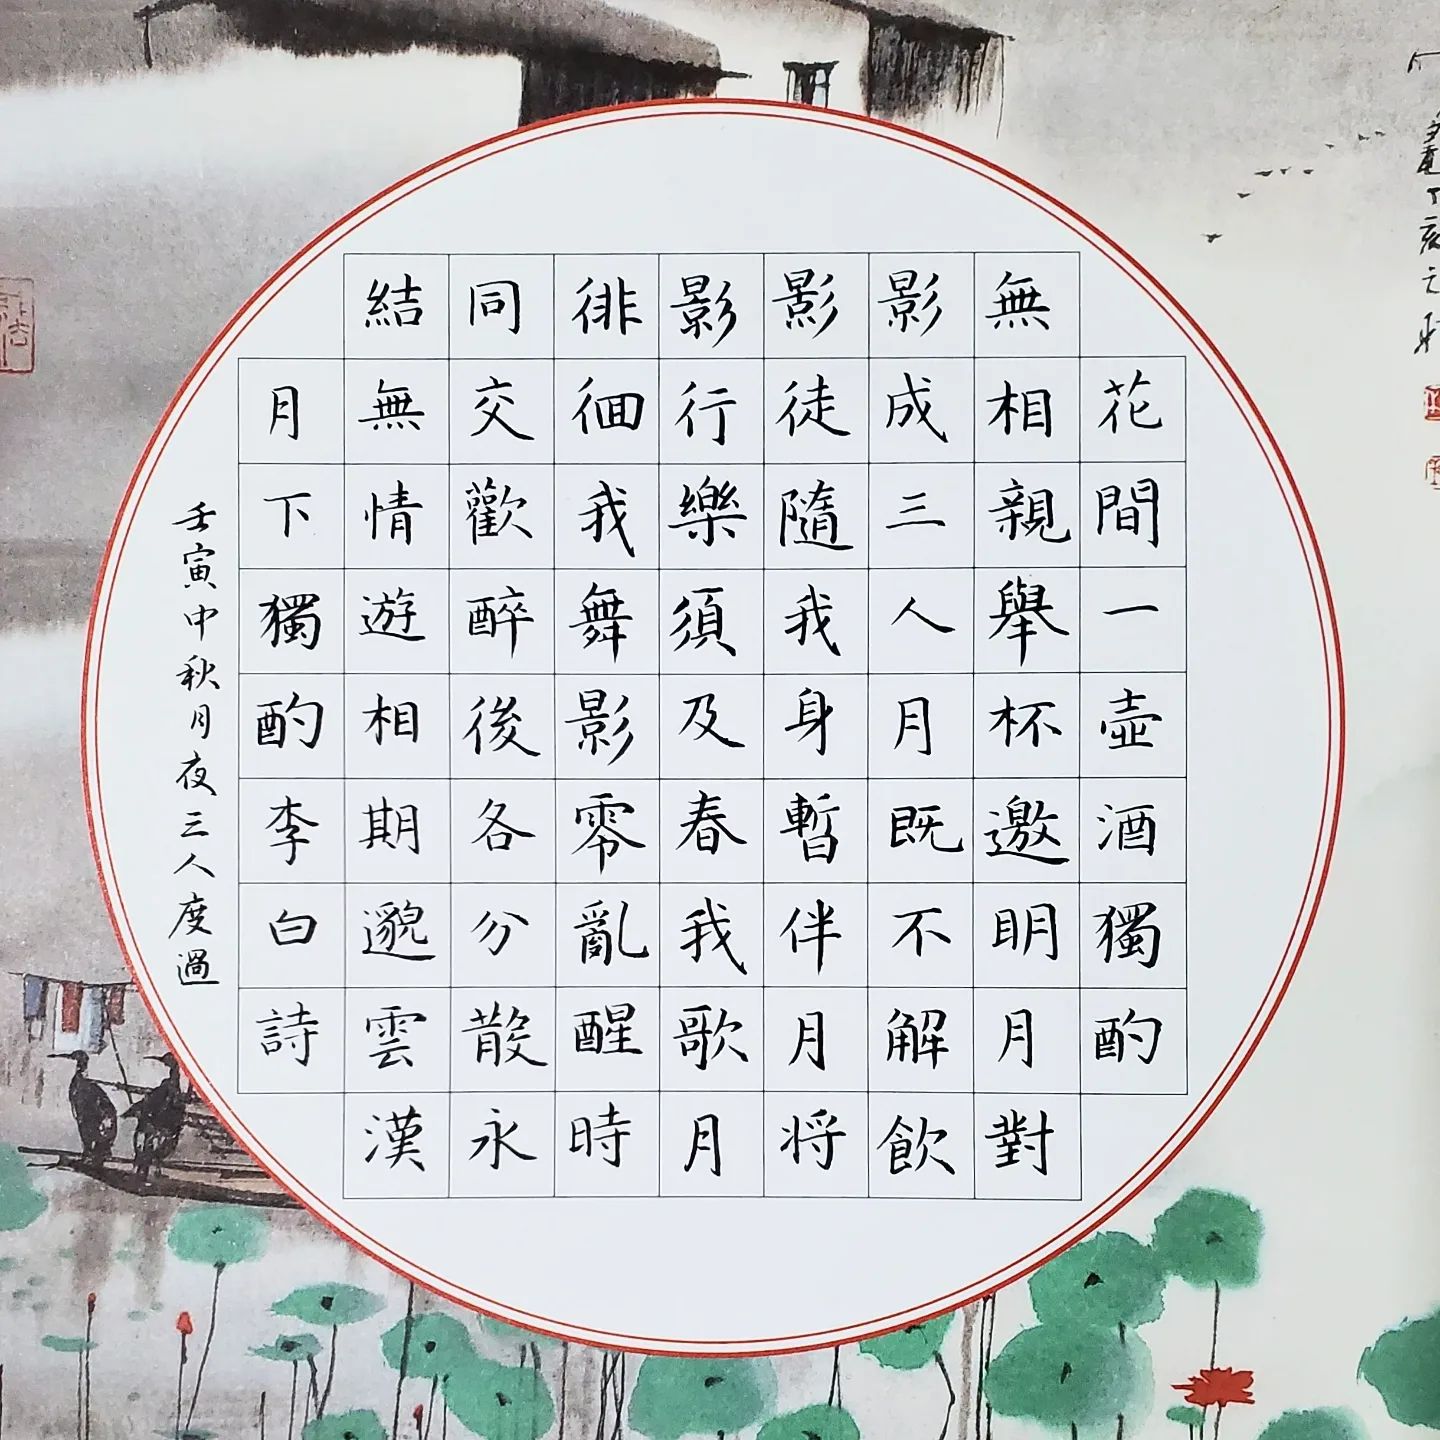 花間一壺酒獨酌
無相親舉杯邀明月對
影成三人月既不解飲
影徒隨我身暫伴月将
影行樂須及春我歌月
徘徊我舞影零亂醒時
同交歡醉後各分散永
結無情遊相期邈雲漢
月下獨酌李白詩
壬寅中秋月夜三人度過